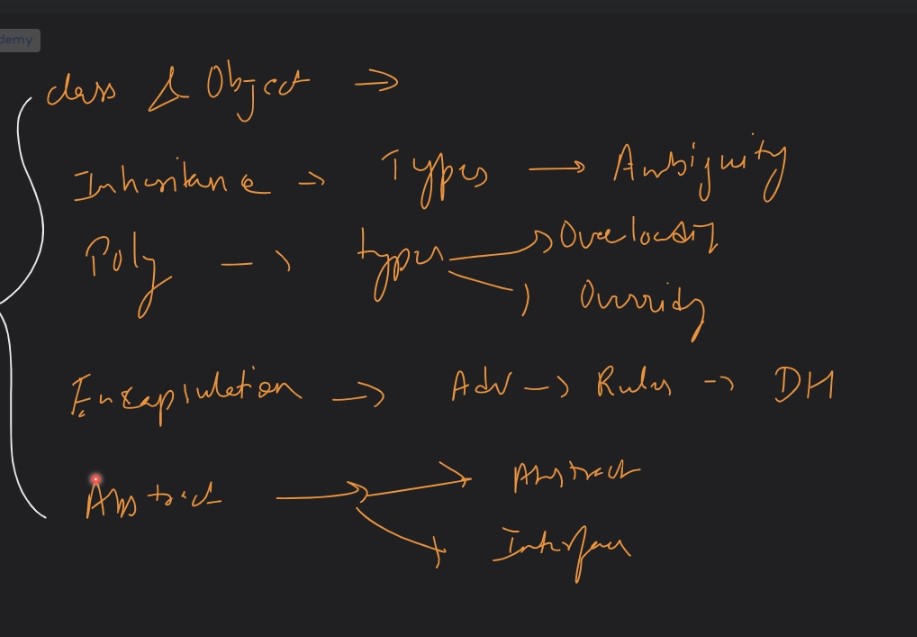 demy
class & Object →
Inheritance → Types → Ambiguity
Poly → types → Overloading
→ Overriding
Encapsulation → Adv → Rules → DH
Abstract → Abstract
→ Interface